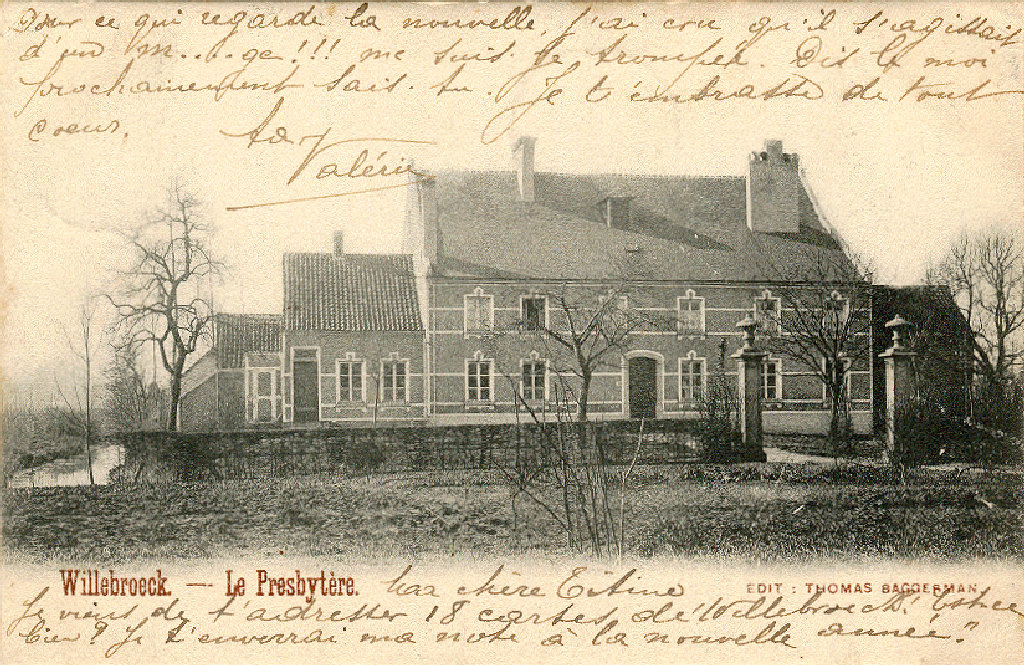 Pour ce qui regarde la nouvelle, j'ai cru qu'il s'agissait
d'un m....ge!!! me suis je trompée. Dis le moi
prochainement sais-tu. Je t'embrasse de tout
coeur,
Ta Valérie
Willebroeck. — Le Presbytère.
EDIT : THOMAS BAGGERMAN
Ma chère Titine
Je viens de t'adresser 18 cartes de Willebroeck! Estce
bien? Je t'enverrai ma note à la nouvelle année?"